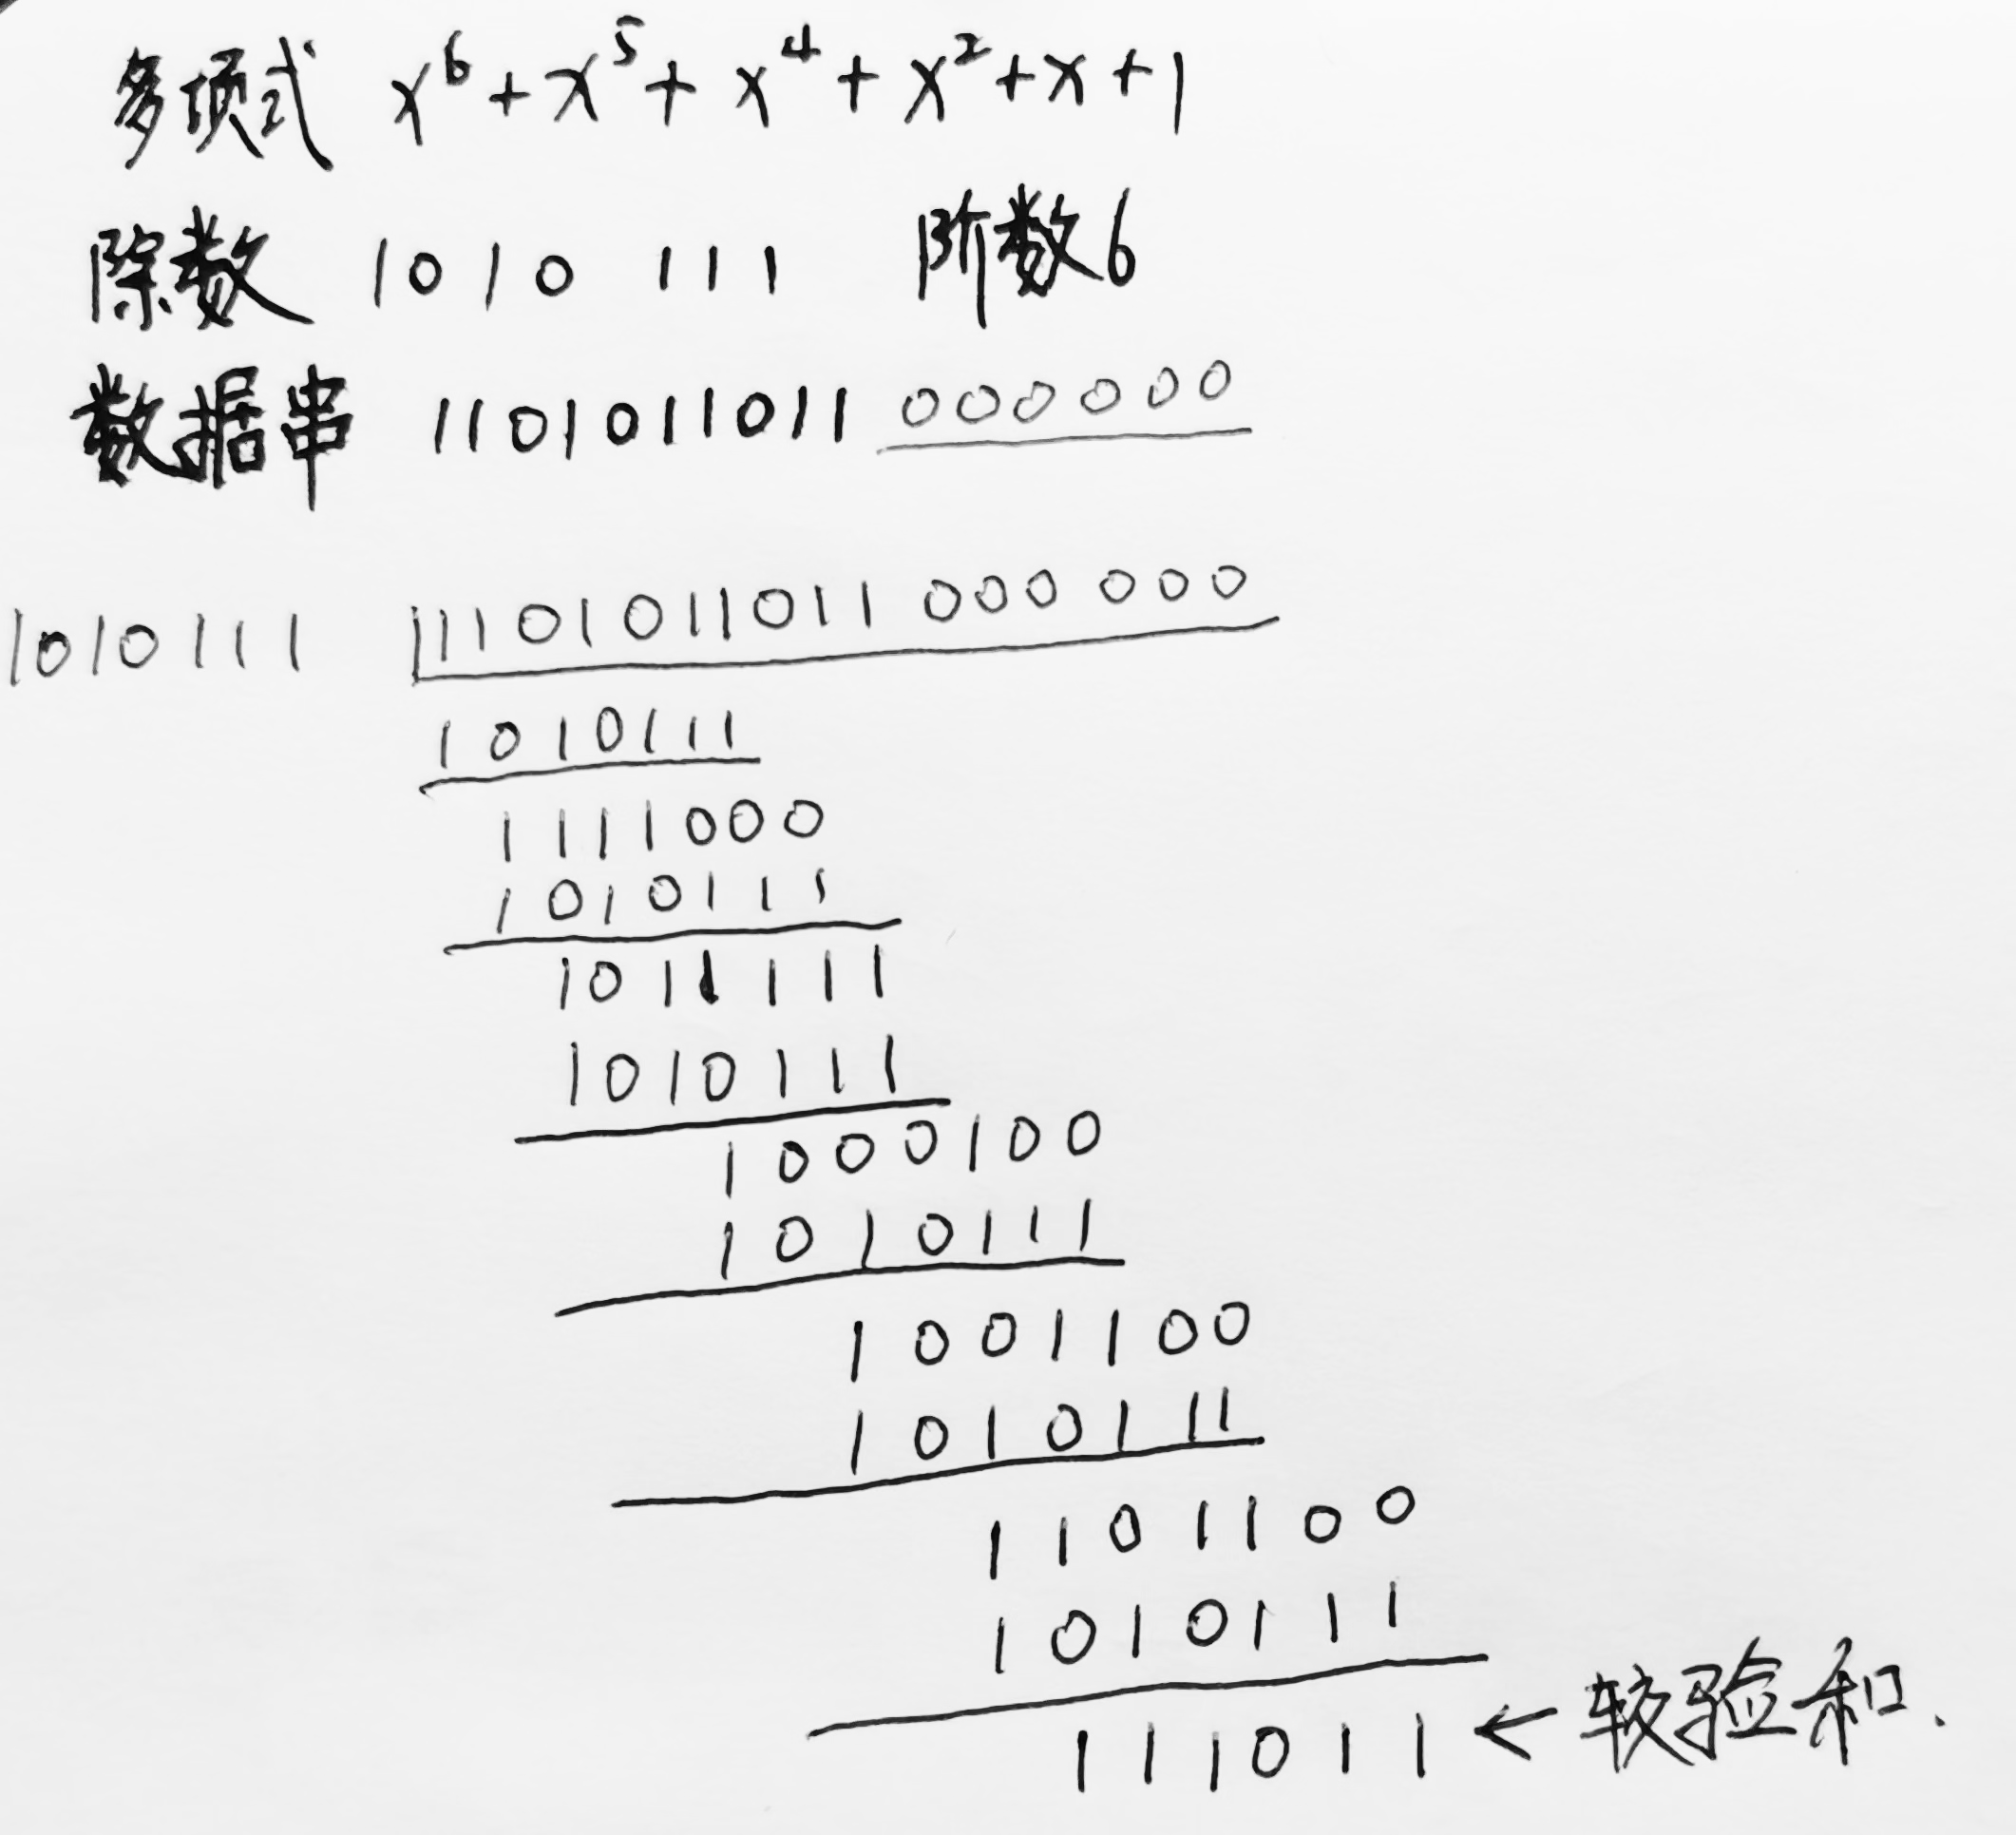 多项式 x⁶+x⁵+x⁴+x²+x+1
除数 1010 111 阶数6
数据串 1101011011 000000
1010111 1101011011 000 000
1010111
1111000
1010111
1011111
1010111
1000100
1010111
1001100
1010111
1101100
1010111
111011 ← 较验和.